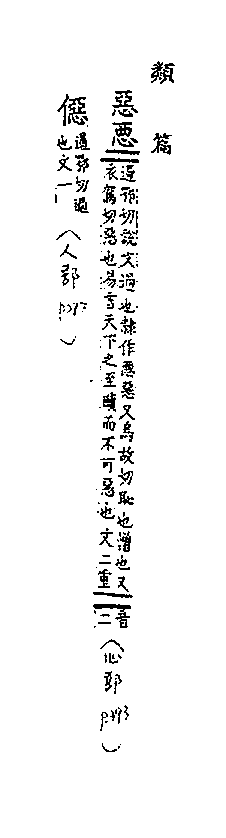 類篇
惡悪
遏鄂切說文過也隸作悪惡又烏故切恥也憎也又
衣駕切惡也易言天下之至賾而不可惡也文二重
音
二
(心部)
僫
遏鄂切過
也文一
(人部)